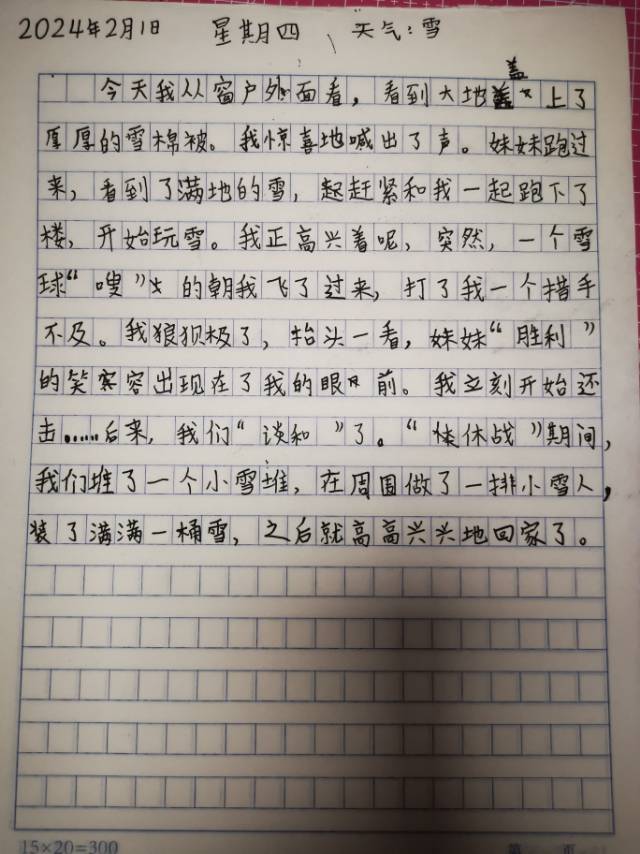 2024年2月1日 星期四 天气:雪
今天我从窗户外面看,看到大地盖上了
厚厚的雪棉被。我惊喜地喊出了声。妹妹跑过
来,看到了满地的雪,起赶紧和我一起跑下了
楼,开始玩雪。我正高兴着呢,突然,一个雪
球“嗖”的朝我飞了过来,打了我一个措手
不及。我狼狈极了,抬头一看,妹妹“胜利”
的笑容出现在了我的眼前。我立刻开始还
击……后来,我们“谈和”了。“休战”期间,
我们堆了一个小雪堆,在周围做了一排小雪人,
装了满满一桶雪,之后就高高兴兴地回家了。
15×20=300
第 页